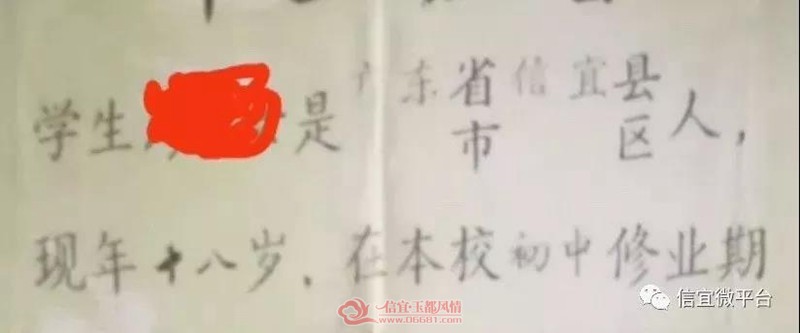 学生是广东省信宜县人,
市 区
现年十八岁,在本校初中修业期
信宜玉都风情
www.06681.com
信宜微平台